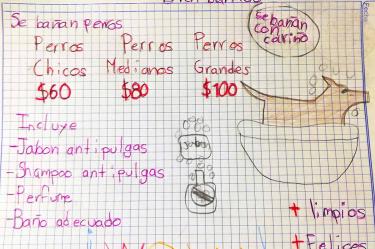 Se bañan perros
Se bañan
con
cariño
Perros Perros Perros
Chicos Medianos Grandes
$60 $80 $100
Incluye
-Jabon antipulgas
Jabon
-Shampoo antipulgas
-Perfume
-Baño adecuado
+ limpios
+ Felices